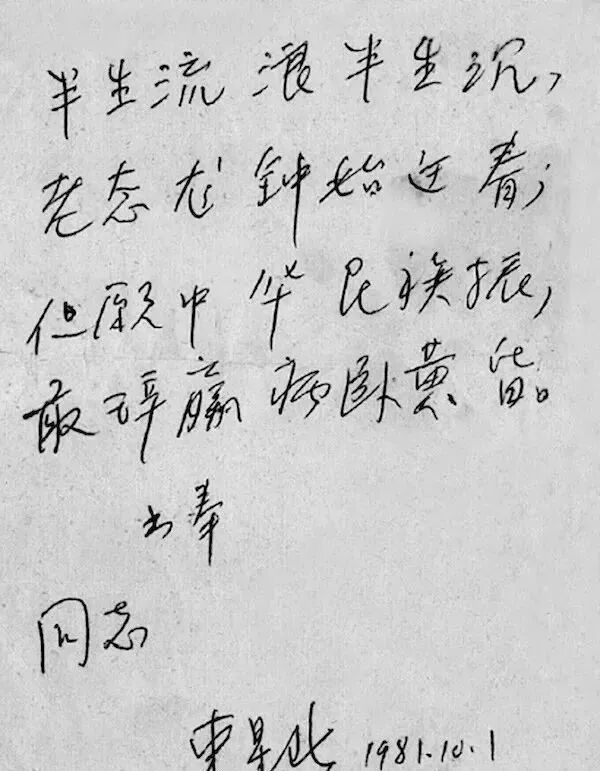 半生流浪半生沉，
老态龙钟始迂春；
但愿中华民族振，
敢辞羸病卧黄昏。
书奉
同志
束星北 1981.10.1